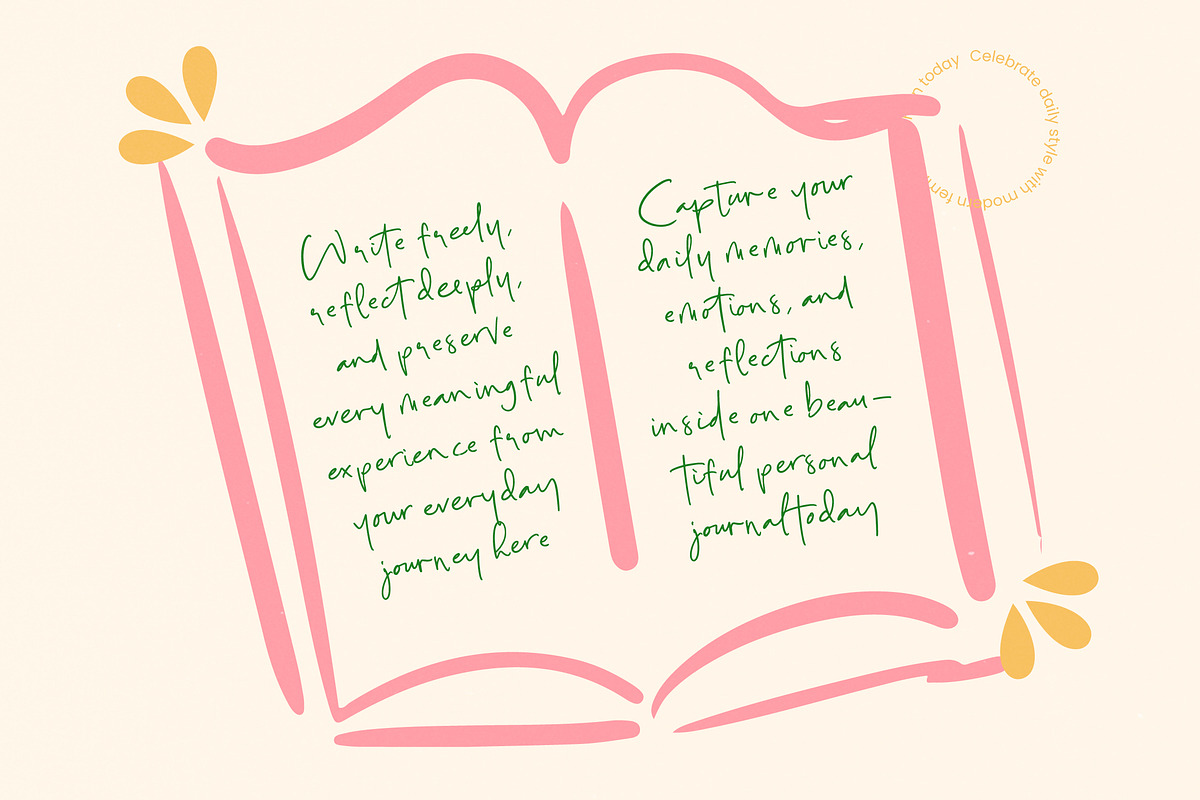 Write freely,
reflect deeply,
and preserve
every meaningful
experience from
your everyday
journey here
Capture your
daily memories,
emotions, and
reflections
inside one beau-
tiful personal
journal today
Celebrate daily style with modern today